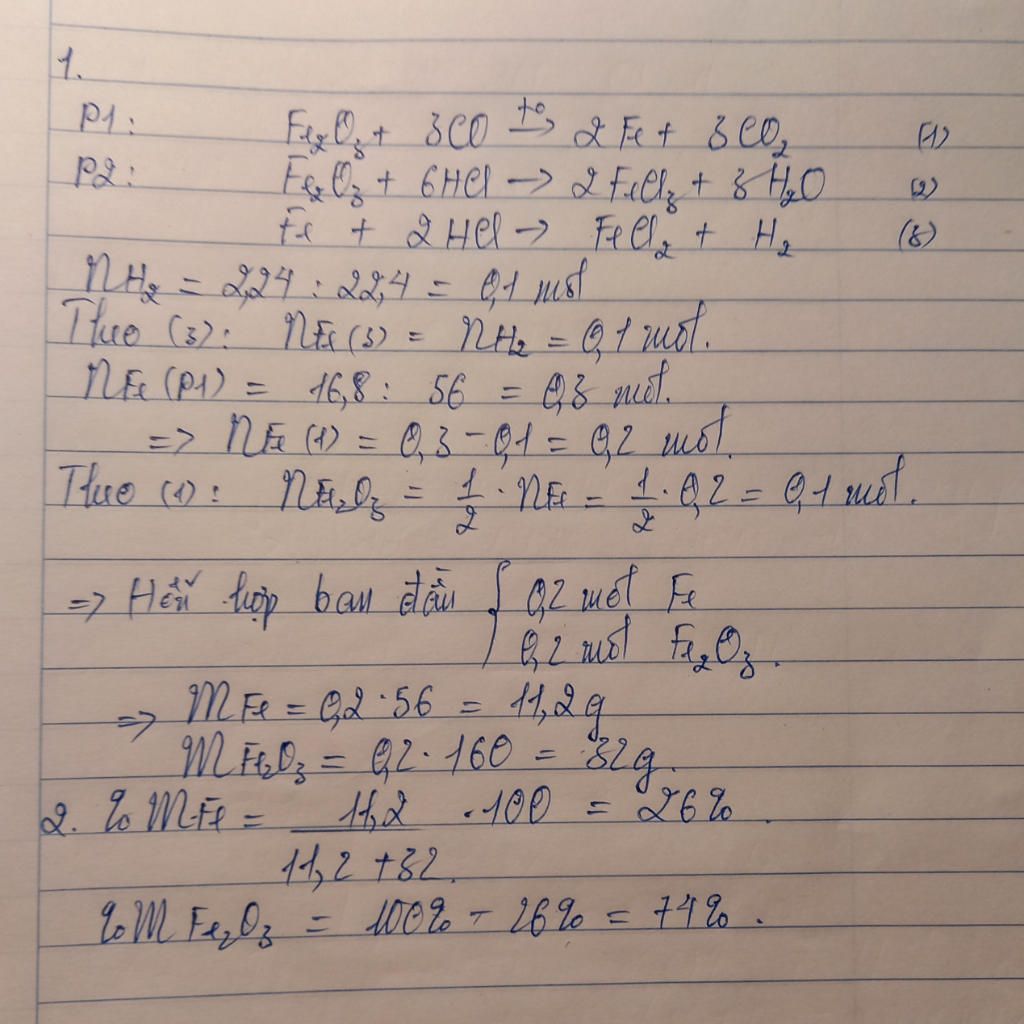 1.
P1: Fe₂O₃ + 3CO t° → 2Fe + 3CO₂ (1)
P2: Fe₂O₃ + 6HCl → 2FeCl₃ + 3H₂O (2)
Fe + 2HCl → FeCl₂ + H₂ (3)
nH₂ = 2,24 : 22,4 = 0,1 mol
Theo (3): nFe(3) = nH₂ = 0,1 mol.
nFe (P1) = 16,8 : 56 = 0,3 mol.
=> nFe (1) = 0,3 - 0,1 = 0,2 mol.
Theo (1): nFe₂O₃ = 1/2 . nFe = 1/2 . 0,2 = 0,1 mol.
=> Hỗn hợp ban đầu { 0,2 mol Fe
0,2 mol Fe₂O₃.
=> mFe = 0,2 . 56 = 11,2g
mFe₂O₃ = 0,2 . 160 = 32g.
2. %mFe = 11,2 / 11,2 + 32. . 100 = 26%.
%mFe₂O₃ = 100% - 26% = 74%.